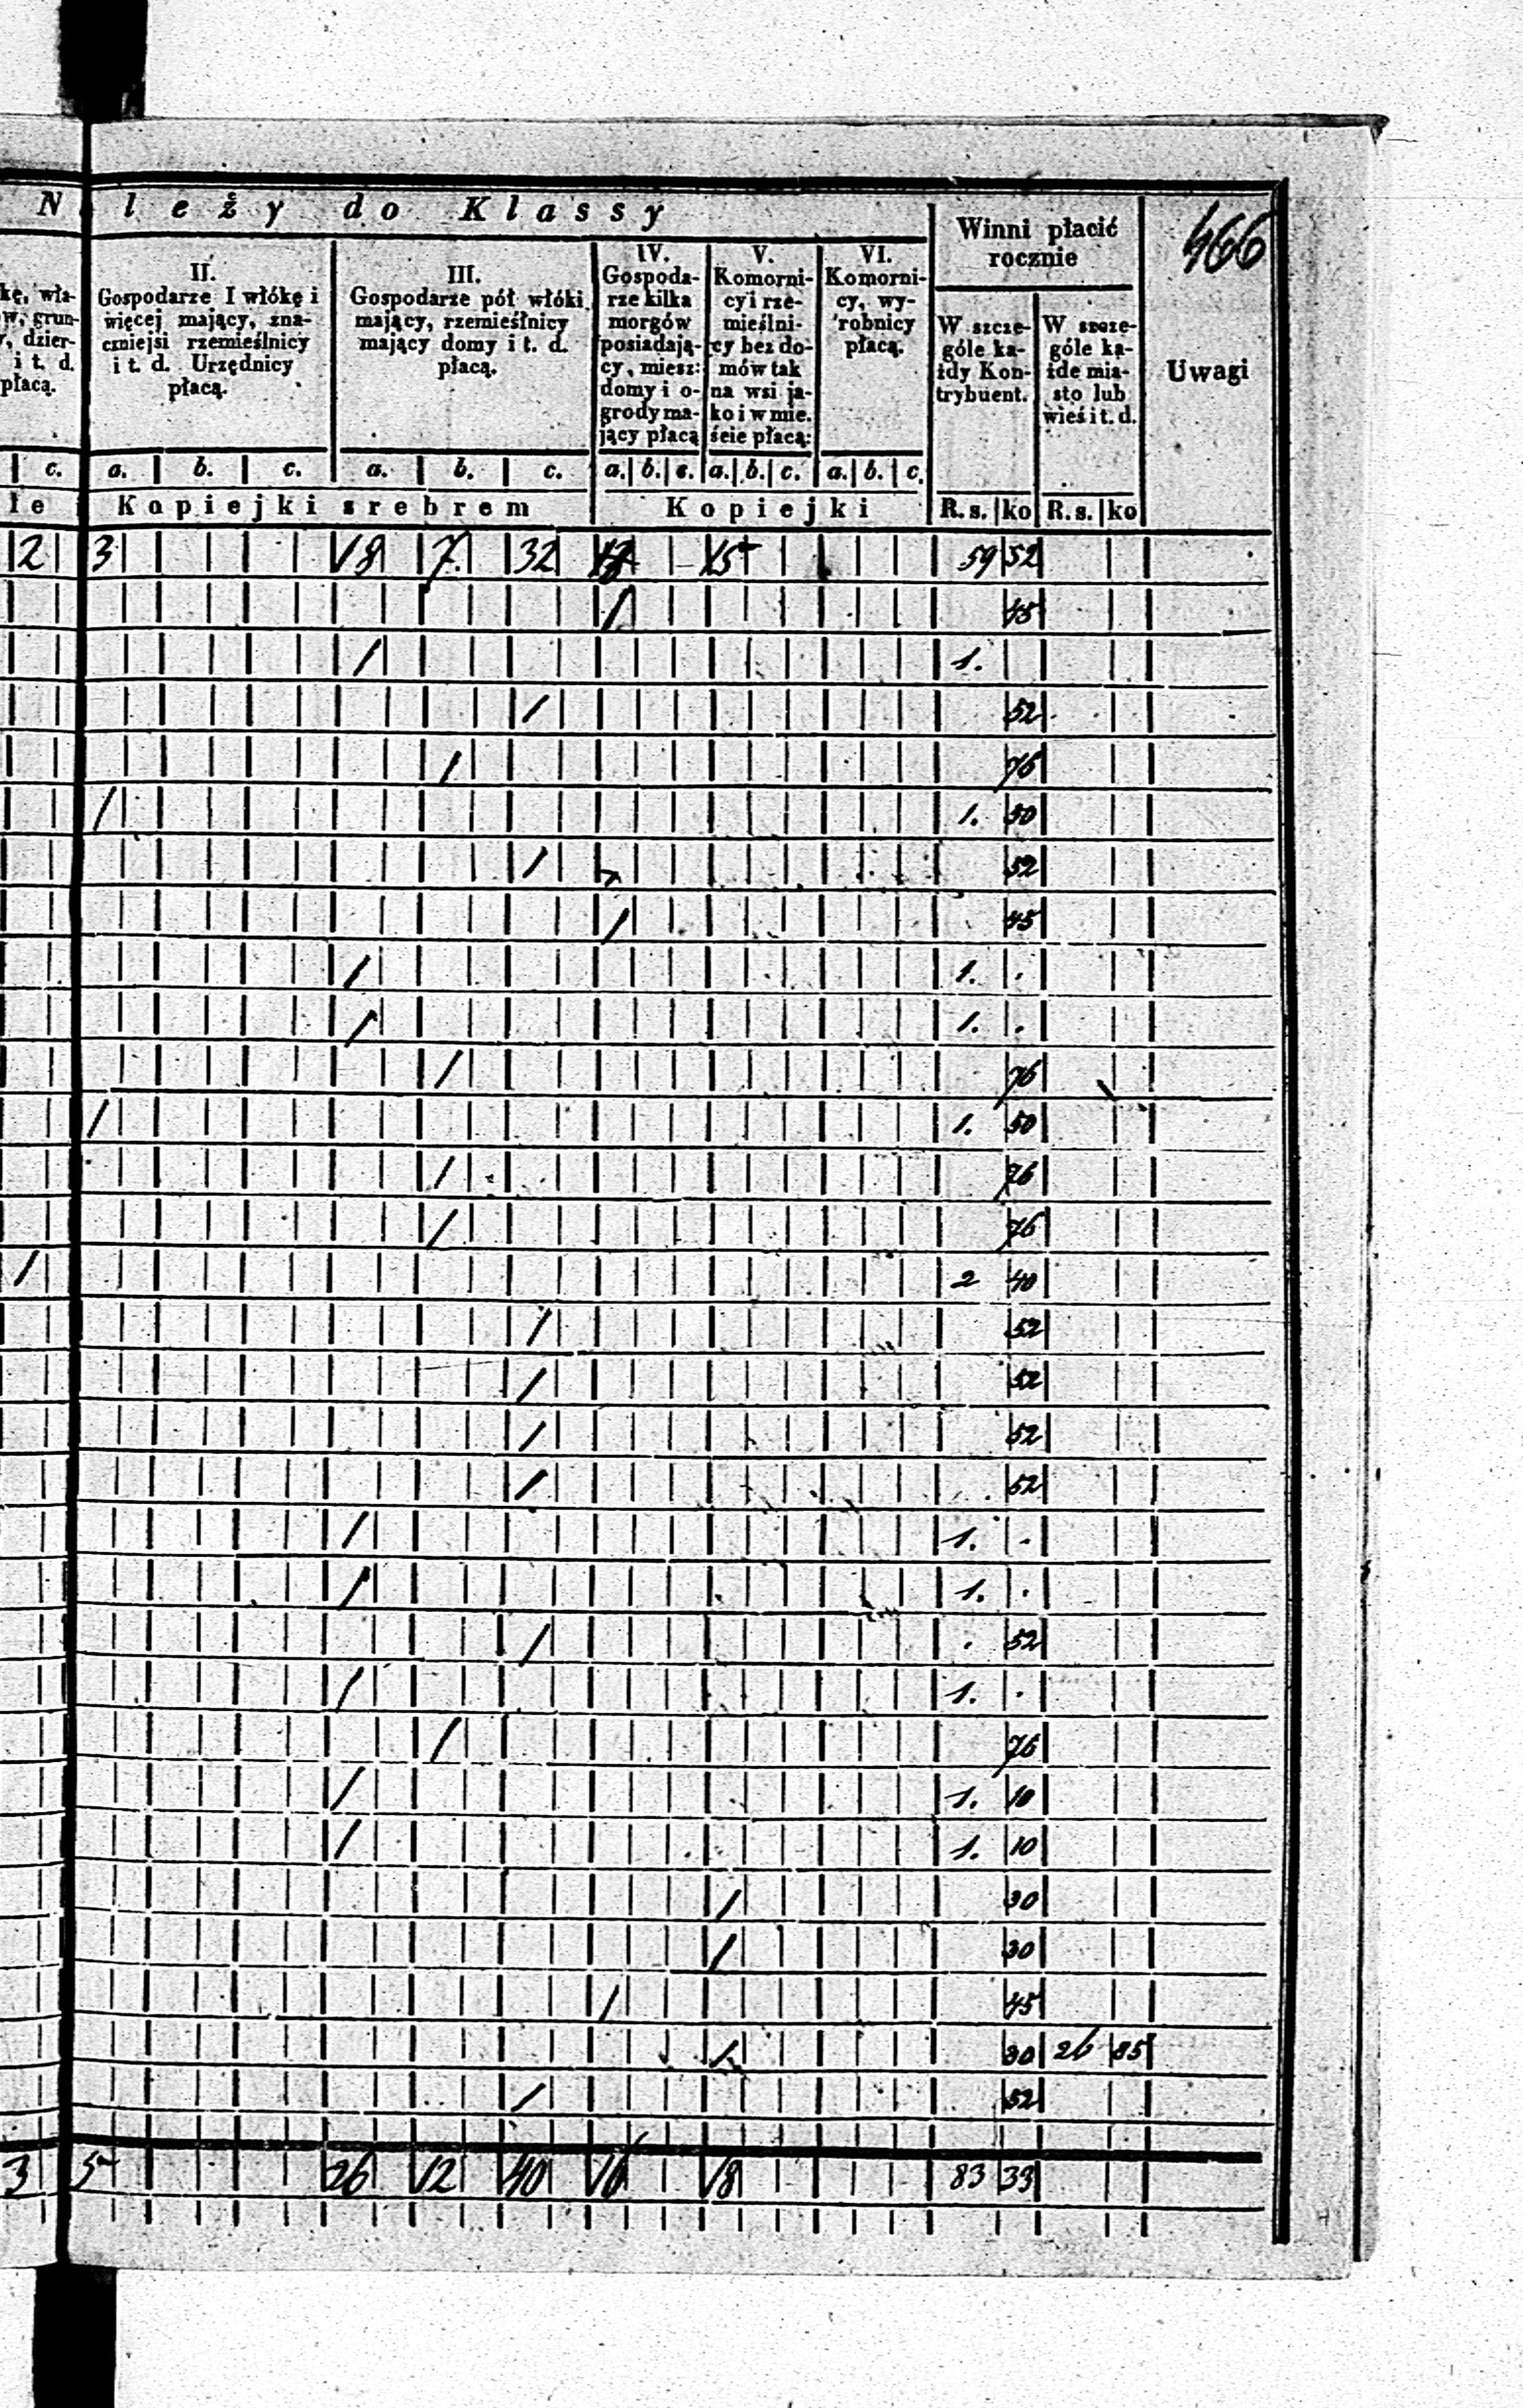 N leży do Klassy
Winni płacić
rocznie
466
kę, wła-
w, grun-
, dzier-
i t. d.
płacą.
II.
Gospodarze I włókę i
więcej mający, zna-
czniejsi rzemieślnicy
i t. d. Urzędnicy
płacą.
III.
Gospodarze pół włóki
mający, rzemieślnicy
mający domy i t. d.
płacą.
IV.
Gospoda-
rze kilka
morgów
posiadają-
cy, miesz:
domy i o-
grody ma-
jący płacą
V.
Komorni-
cy i rze-
mieślni-
cy bez do-
mów tak
na wsi ja-
ko i w mie.
ście płacą:
VI.
Komorni-
cy, wy-
robnicy
płacą.
W szcze-
góle ka-
żdy Kon-
trybuent.
W szcze-
góle ka-
żde mia-
sto lub
wieś i t. d.
Uwagi
c. a. b. c. a. b. c. a. b. c. a. b. c. a. b. c.
łe Kopiejki srebrem Kopiejki R.s. ko R.s. ko
2 3 18 7 32 15 59 52
/ 45
/ 1.
/ 52
/ 76
/ 1. 50
/ 52
/ 45
/ 1. .
/ 1. .
/ 76
/ 1. 50
/ 76
/ 76
/ 2 40
/ 52
/ 52
/ 52
/ 52
/ 1. .
/ 1. .
/ . 52
/ 1. .
/ 76
/ 1. 10
/ 1. 10
/ 30
/ 30
/ 45
/ 30 26 85
/ 52
3 5 26 12 40 16 18 83 33